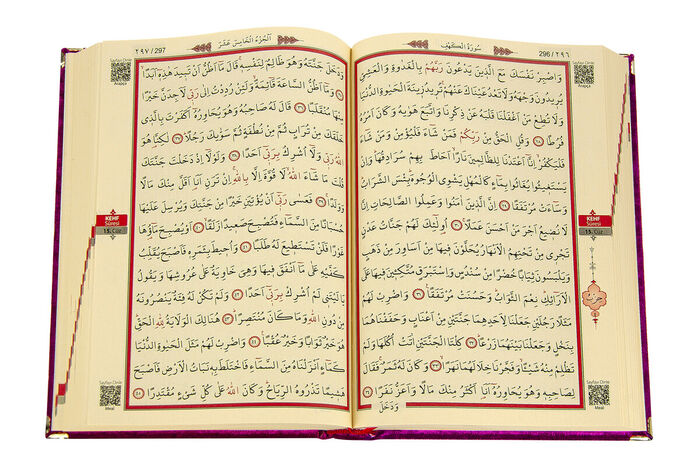 سُورَةُ الْكَهْفِ
296 / ٢٩٦
وَاصْبِرْ نَفْسَكَ مَعَ الَّذِينَ يَدْعُونَ رَبَّهُمْ بِالْغَدٰوةِ وَالْعَشِيِّ
يُرِيدُونَ وَجْهَهُ وَلَا تَعْدُ عَيْنَاكَ عَنْهُمْ تُرِيدُ زِينَةَ الْحَيٰوةِ الدُّنْيَا
وَلَا تُطِعْ مَنْ اَغْفَلْنَا قَلْبَهُ عَنْ ذِكْرِنَا وَاتَّبَعَ هَوٰيهُ وَكَانَ اَمْرُهُ
فُرُطًا ﴿٢٨﴾ وَقُلِ الْحَقُّ مِنْ رَبِّكُمْ فَمَنْ شَاءَ فَلْيُؤْمِنْ وَمَنْ شَاءَ
فَلْيَكْفُرْ اِنَّا اَعْتَدْنَا لِلظَّالِمِينَ نَارًا اَحَاطَ بِهِمْ سُرَادِقُهَا وَاِنْ
يَسْتَغِيثُوا يُغَاثُوا بِمَاءٍ كَالْمُهْلِ يَشْوِي الْوُجُوهَ بِئْسَ الشَّرَابُ
وَسَاءَتْ مُرْتَفَقًا ﴿٢٩﴾ اِنَّ الَّذِينَ اٰمَنُوا وَعَمِلُوا الصَّالِحَاتِ اِنَّا
لَا نُضِيعُ اَجْرَ مَنْ اَحْسَنَ عَمَلًا ﴿٣٠﴾ اُولٰئِكَ لَهُمْ جَنَّاتُ عَدْنٍ
تَجْرِي مِنْ تَحْتِهِمُ الْاَنْهَارُ يُحَلَّوْنَ فِيهَا مِنْ اَسَاوِرَ مِنْ ذَهَبٍ
وَيَلْبَسُونَ ثِيَابًا خُضْرًا مِنْ سُنْدُسٍ وَاِسْتَبْرَقٍ مُتَّكِـِٔينَ فِيهَا عَلَى
الْاَرَائِكِ نِعْمَ الثَّوَابُ وَحَسُنَتْ مُرْتَفَقًا ﴿٣١﴾ وَاضْرِبْ لَهُمْ
مَثَلًا رَجُلَيْنِ جَعَلْنَا لِاَحَدِهِمَا جَنَّتَيْنِ مِنْ اَعْنَابٍ وَحَفَفْنَاهُمَا
بِنَخْلٍ وَجَعَلْنَا بَيْنَهُمَا زَرْعًا ﴿٣٢﴾ كِلْتَا الْجَنَّتَيْنِ اٰتَتْ اُكُلَهَا وَلَمْ
تَظْلِمْ مِنْهُ شَيْـًٔا وَفَجَّرْنَا خِلَالَهُمَا نَهَرًا ﴿٣٣﴾ وَكَانَ لَهُ ثَمَرٌ فَقَالَ
لِصَاحِبِهِ وَهُوَ يُحَاوِرُهُ اَنَا اَكْثَرُ مِنْكَ مَالًا وَاَعَزُّ نَفَرًا ﴿٣٤﴾
وَدَخَلَ
Sayfayı Dinle
Arapça
KEHF
Sûresi
15. Cüz
حزب
Sayfayı Dinle
Meal
اَلْجُزْءُ الْخَامِسَ عَشَرَ
٢٩٧ / 297
وَدَخَلَ جَنَّتَهُ وَهُوَ ظَالِمٌ لِنَفْسِهِ قَالَ مَا اَظُنُّ اَنْ تَبِيدَ هٰذِهِ اَبَدًا
﴿٣٥﴾ وَمَا اَظُنُّ السَّاعَةَ قَائِمَةً وَلَئِنْ رُدِدْتُ اِلٰى رَبِّي لَاَجِدَنَّ خَيْرًا
مِنْهَا مُنْقَلَبًا ﴿٣٦﴾ قَالَ لَهُ صَاحِبُهُ وَهُوَ يُحَاوِرُهُ اَكَفَرْتَ بِالَّذِي
خَلَقَكَ مِنْ تُرَابٍ ثُمَّ مِنْ نُطْفَةٍ ثُمَّ سَوّٰيكَ رَجُلًا ﴿٣٧﴾ لٰكِنَّا هُوَ
اللّٰهُ رَبِّي وَلَا اُشْرِكُ بِرَبِّي اَحَدًا ﴿٣٨﴾ وَلَوْلَا اِذْ دَخَلْتَ جَنَّتَكَ
قُلْتَ مَا شَاءَ اللّٰهُ لَا قُوَّةَ اِلَّا بِاللّٰهِ اِنْ تَرَنِ اَنَا اَقَلَّ مِنْكَ مَالًا
وَوَلَدًا ﴿٣٩﴾ فَعَسٰى رَبِّي اَنْ يُؤْتِيَنِ خَيْرًا مِنْ جَنَّتِكَ وَيُرْسِلَ عَلَيْهَا
حُسْبَانًا مِنَ السَّمَاءِ فَتُصْبِحَ صَعِيدًا زَلَقًا ﴿٤٠﴾ اَوْ يُصْبِحَ مَاؤُهَا
غَوْرًا فَلَنْ تَسْتَطِيعَ لَهُ طَلَبًا ﴿٤١﴾ وَاُحِيطَ بِثَمَرِهِ فَاَصْبَحَ يُقَلِّبُ
كَفَّيْهِ عَلٰى مَا اَنْفَقَ فِيهَا وَهِيَ خَاوِيَةٌ عَلٰى عُرُوشِهَا وَيَقُولُ
يَا لَيْتَنِي لَمْ اُشْرِكْ بِرَبِّي اَحَدًا ﴿٤٢﴾ وَلَمْ تَكُنْ لَهُ فِئَةٌ يَنْصُرُونَهُ
مِنْ دُونِ اللّٰهِ وَمَا كَانَ مُنْتَصِرًا ﴿٤٣﴾ هُنَالِكَ الْوَلَايَةُ لِلّٰهِ الْحَقِّ
هُوَ خَيْرٌ ثَوَابًا وَخَيْرٌ عُقْبًا ﴿٤٤﴾ وَاضْرِبْ لَهُمْ مَثَلَ الْحَيٰوةِ الدُّنْيَا
كَمَاءٍ اَنْزَلْنَاهُ مِنَ السَّمَاءِ فَاخْتَلَطَ بِهِ نَبَاتُ الْاَرْضِ فَاَصْبَحَ
هَشِيمًا تَذْرُوهُ الرِّيَاحُ وَكَانَ اللّٰهُ عَلٰى كُلِّ شَيْءٍ مُقْتَدِرًا ﴿٤٥﴾
Sayfayı Dinle
Arapça
KEHF
Sûresi
15. Cüz
Sayfayı Dinle
Meal